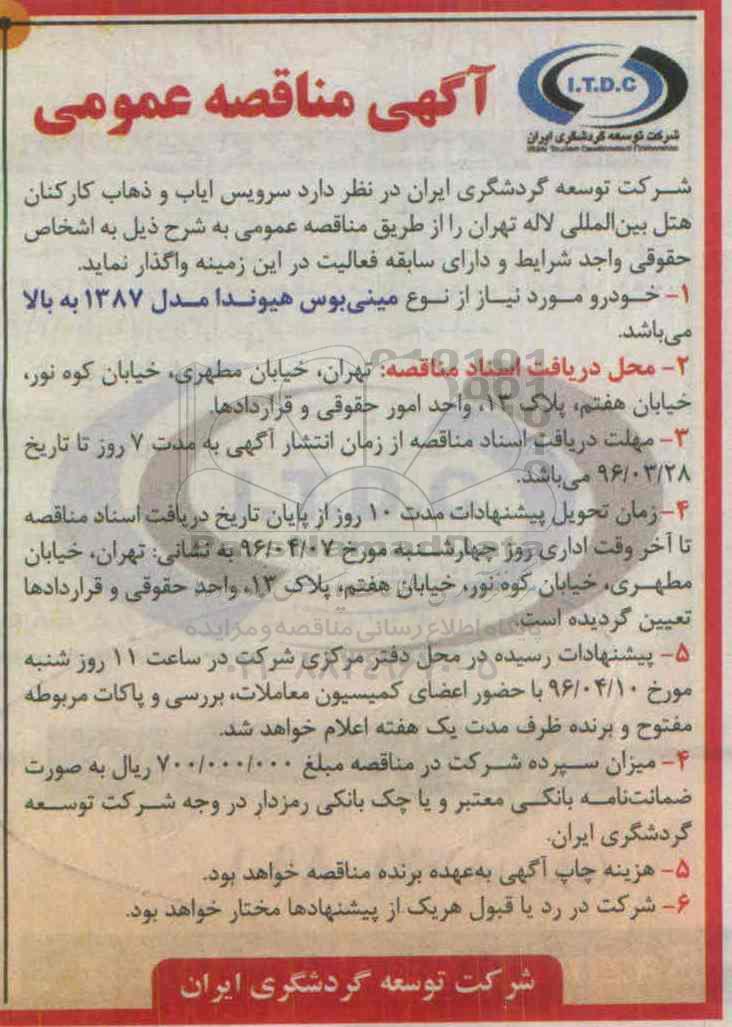 I.T.D.C
شرکت توسعه گردشگری ایران
آگهی مناقصه عمومی
شرکت توسعه گردشگری ایران در نظر دارد سرویس ایاب و ذهاب کارکنان
هتل بین‌المللی لاله تهران را از طریق مناقصه عمومی به شرح ذیل به اشخاص
حقوقی واجد شرایط و دارای سابقه فعالیت در این زمینه واگذار نماید.
۱- خودرو مورد نیاز از نوع مینی‌بوس هیوندا مدل ۱۳۸۷ به بالا
می‌باشد.
۲- محل دریافت اسناد مناقصه: تهران، خیابان مطهری، خیابان کوه نور،
خیابان هفتم، پلاک ۱۳، واحد امور حقوقی و قراردادها.
۳- مهلت دریافت اسناد مناقصه از زمان انتشار آگهی به مدت ۷ روز تا تاریخ
۹۶/۰۳/۲۸ می‌باشد.
۴- زمان تحویل پیشنهادات مدت ۱۰ روز از پایان تاریخ دریافت اسناد مناقصه
تا آخر وقت اداری روز چهارشنبه مورخ ۹۶/۰۴/۰۷ به نشانی: تهران، خیابان
مطهری، خیابان کوه نور، خیابان هفتم، پلاک ۱۳، واحد حقوقی و قراردادها
تعیین گردیده است.
پایگاه اطلاع رسانی مناقصه و مزایده
۵- پیشنهادات رسیده در محل دفتر مرکزی شرکت در ساعت ۱۱ روز شنبه
مورخ ۹۶/۰۴/۱۰ با حضور اعضای کمیسیون معاملات، بررسی و پاکات مربوطه
مفتوح و برنده ظرف مدت یک هفته اعلام خواهد شد.
۴- میزان سپرده شرکت در مناقصه مبلغ ۷۰۰/۰۰۰/۰۰۰ ریال به صورت
ضمانت‌نامه بانکی معتبر و یا چک بانکی رمزدار در وجه شرکت توسعه
گردشگری ایران.
۵- هزینه چاپ آگهی به‌عهده برنده مناقصه خواهد بود.
۶- شرکت در رد یا قبول هریک از پیشنهادها مختار خواهد بود.
شرکت توسعه گردشگری ایران